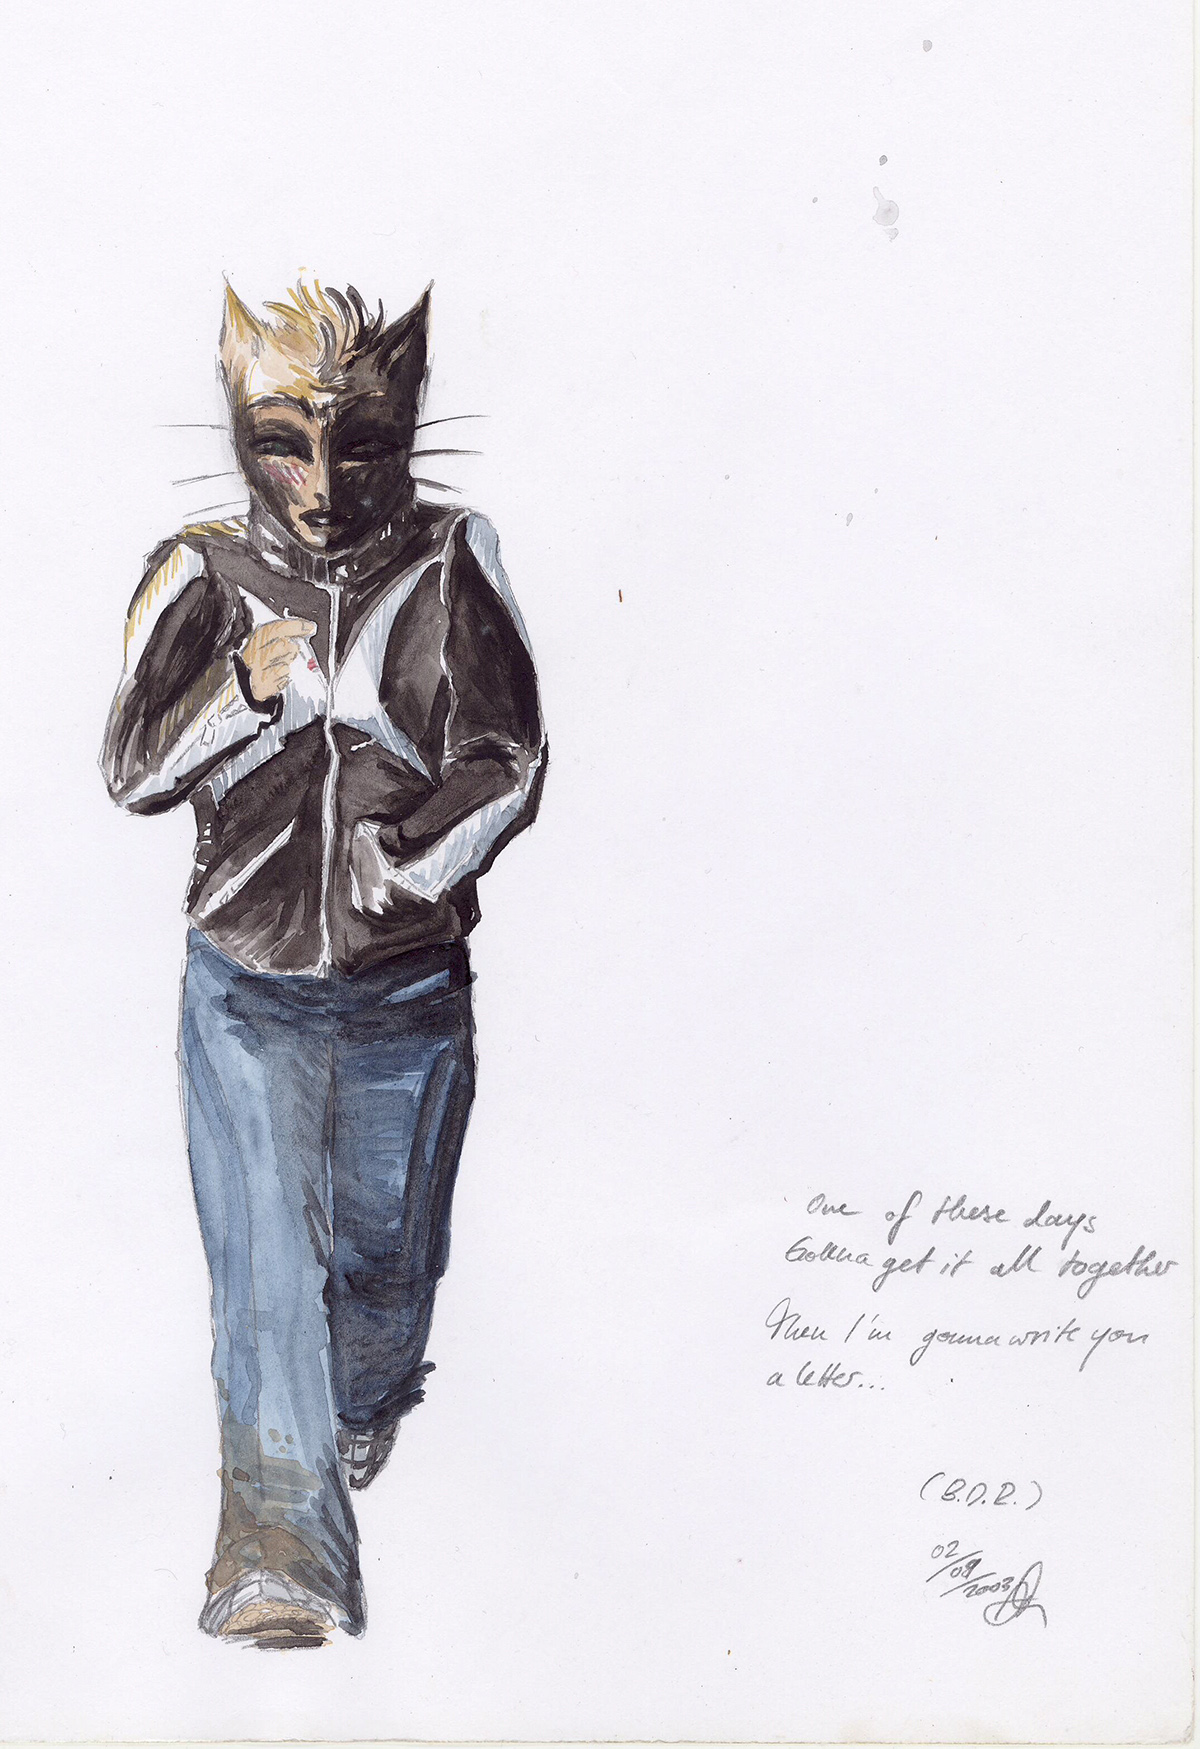 One of these days
Gonna get it all together
Then I'm gonna write you
a letter...
(B.D.R.)
02/09/2003